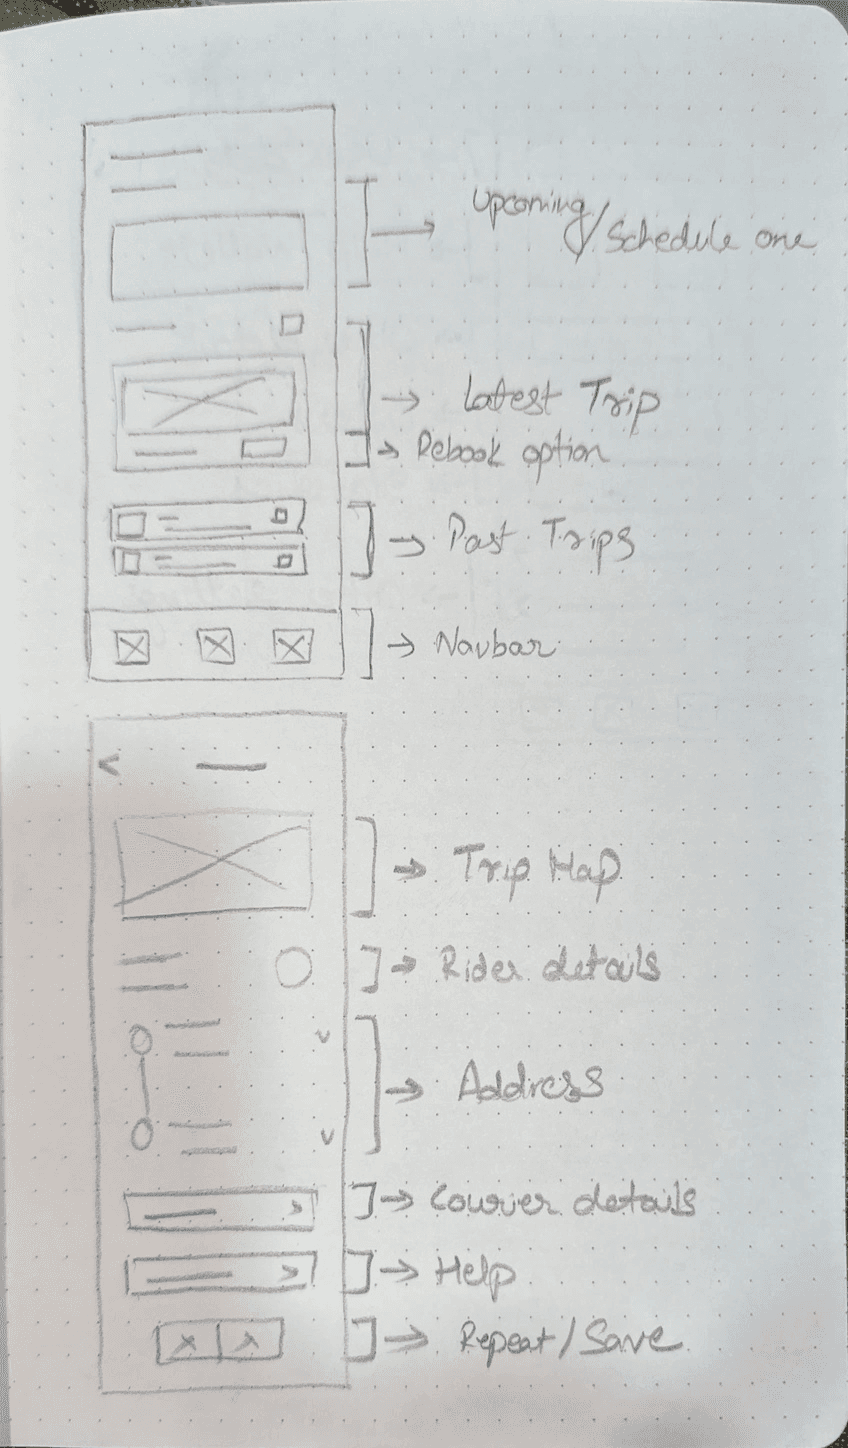 Upcoming/Schedule one
Latest Trip
Rebook option
Past Trips
Navbar
Trip Map
Rider details
Address
Courier details
Help
Repeat/Save